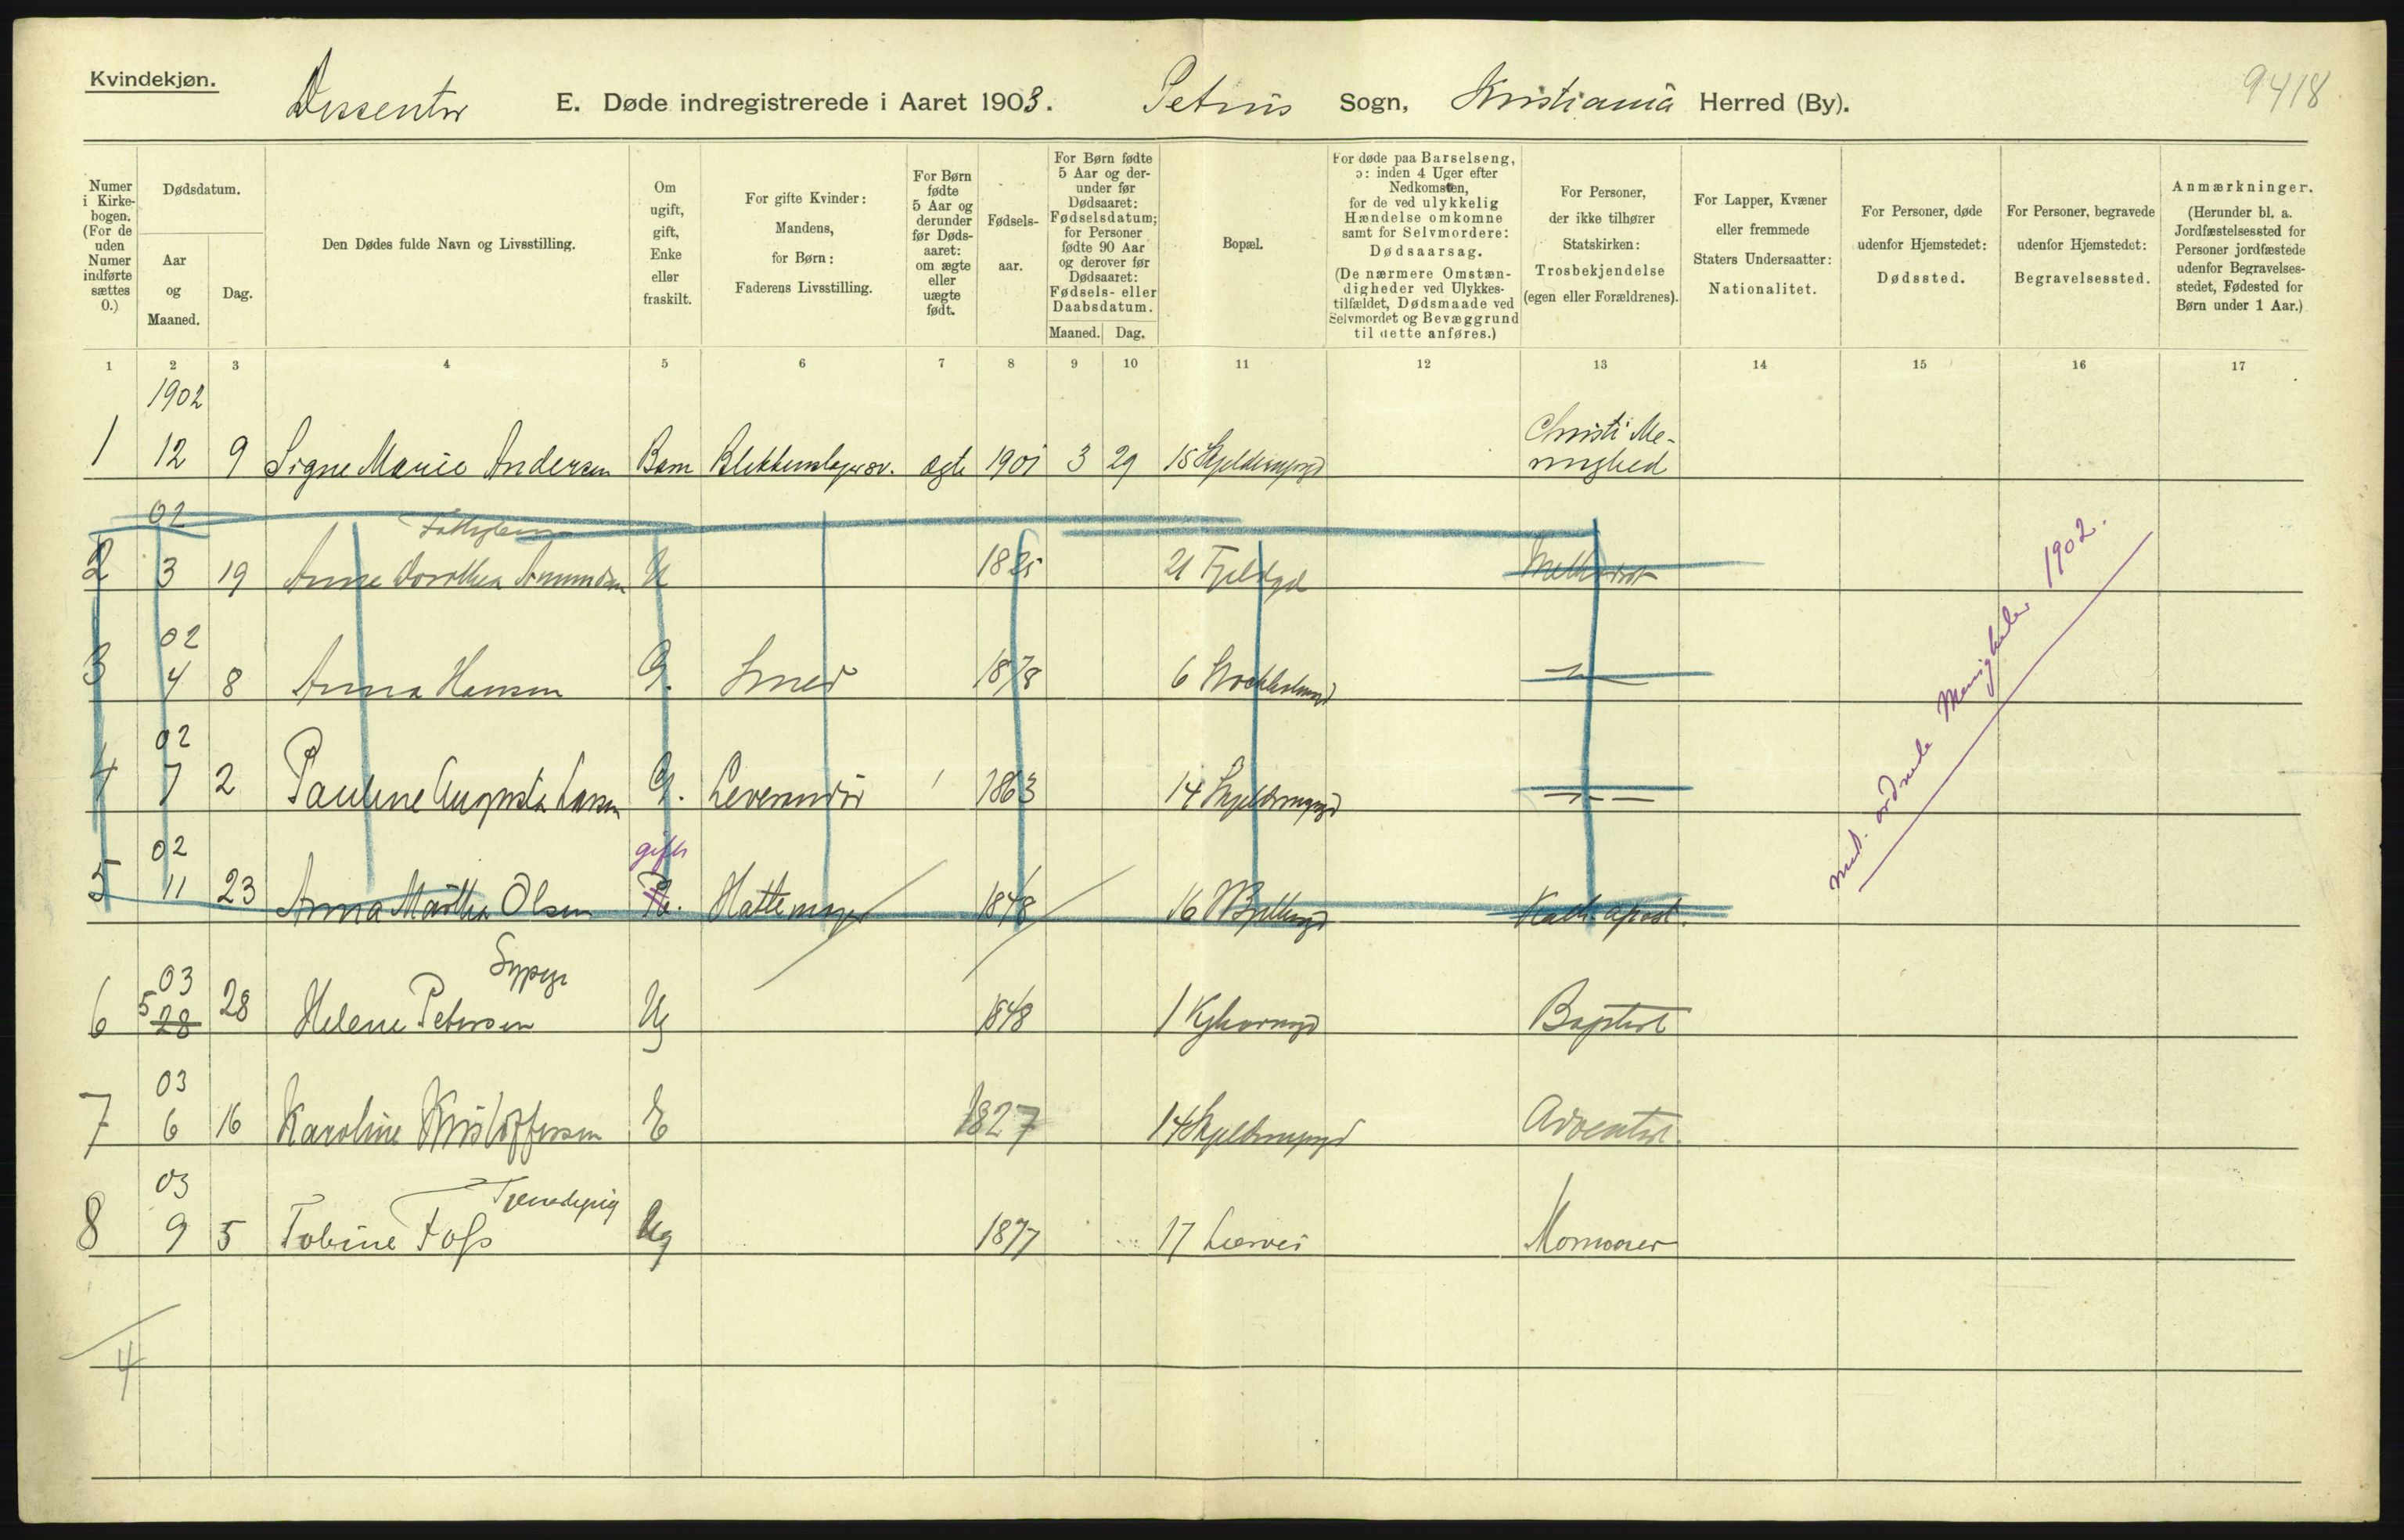 Kvindekjøn.
Dissenter E. Døde indregistrerede i Aaret 1903. Petrus Sogn, Kristiania Herred (By). 9418
Numer i Kirkebogen. (For de uden Numer indførte sættes 0.)
Dødsdatum.
Aar og Maaned.
Dag.
Den Dødes fulde Navn og Livsstilling.
Om ugift, gift, Enke eller fraskilt.
For gifte Kvinder: Mandens, for Børn: Faderens Livsstilling.
For Børn fødte 5 Aar og derunder før Dødsaaret: om ægte eller uægte født.
Fødselsaar.
For Børn fødte 5 Aar og derunder før Dødsaaret: Fødselsdatum; for Personer fødte 90 Aar og derover før Dødsaaret: Fødsels- eller Daabsdatum.
Maaned. Dag.
Bopæl.
For døde paa Barselseng, ɔ: inden 4 Uger efter Nedkomsten, for de ved ulykkelig Hændelse omkomne samt for Selvmordere: Dødsaarsag. (De nærmere Omstændigheder ved Ulykkestilfældet, Dødsmaade ved Selvmordet og Bevæggrund til dette anføres.)
For Personer, der ikke tilhører Statskirken: Trosbekjendelse (egen eller Forældrenes).
For Lapper, Kvæner eller fremmede Staters Undersaatter: Nationalitet.
For Personer, døde udenfor Hjemstedet: Dødssted.
For Personer, begravede udenfor Hjemstedet: Begravelsessted.
Anmærkninger. (Herunder bl. a. Jordfæstelsessted for Personer jordfæstede udenfor Begravelsesstedet, Fødested for Børn under 1 Aar.)
1 2 3 4 5 6 7 8 9 10 11 12 13 14 15 16 17
1902
1 12 9 Signe Marie Andersen Barn Blikkenslagersv. ægte 1901 3 29 15 Christi Menighed
02
2 3 19 Anne Dorothea Amundsen U 1825 21 Methodist
02
3 4 8 Anna Hansen G. Smed 1878 6
02
4 7 2 Pauline Augusta Larsen G. Leverandør 1863 14
02 gift
5 11 23 Anna Marthea Olsen Hattemager 1848 16 Kath. apost.
03 Sypige
6 5 28 28 Helene Petersen Ug 1848 1 Baptist
03
7 6 16 Karoline Kristoffersen E 1827 14 Adventist.
03 Tjenestepig
8 9 5 Tobine Foss Ug 1877 17 Mormoner
4
ordnede Menigheder 1902.